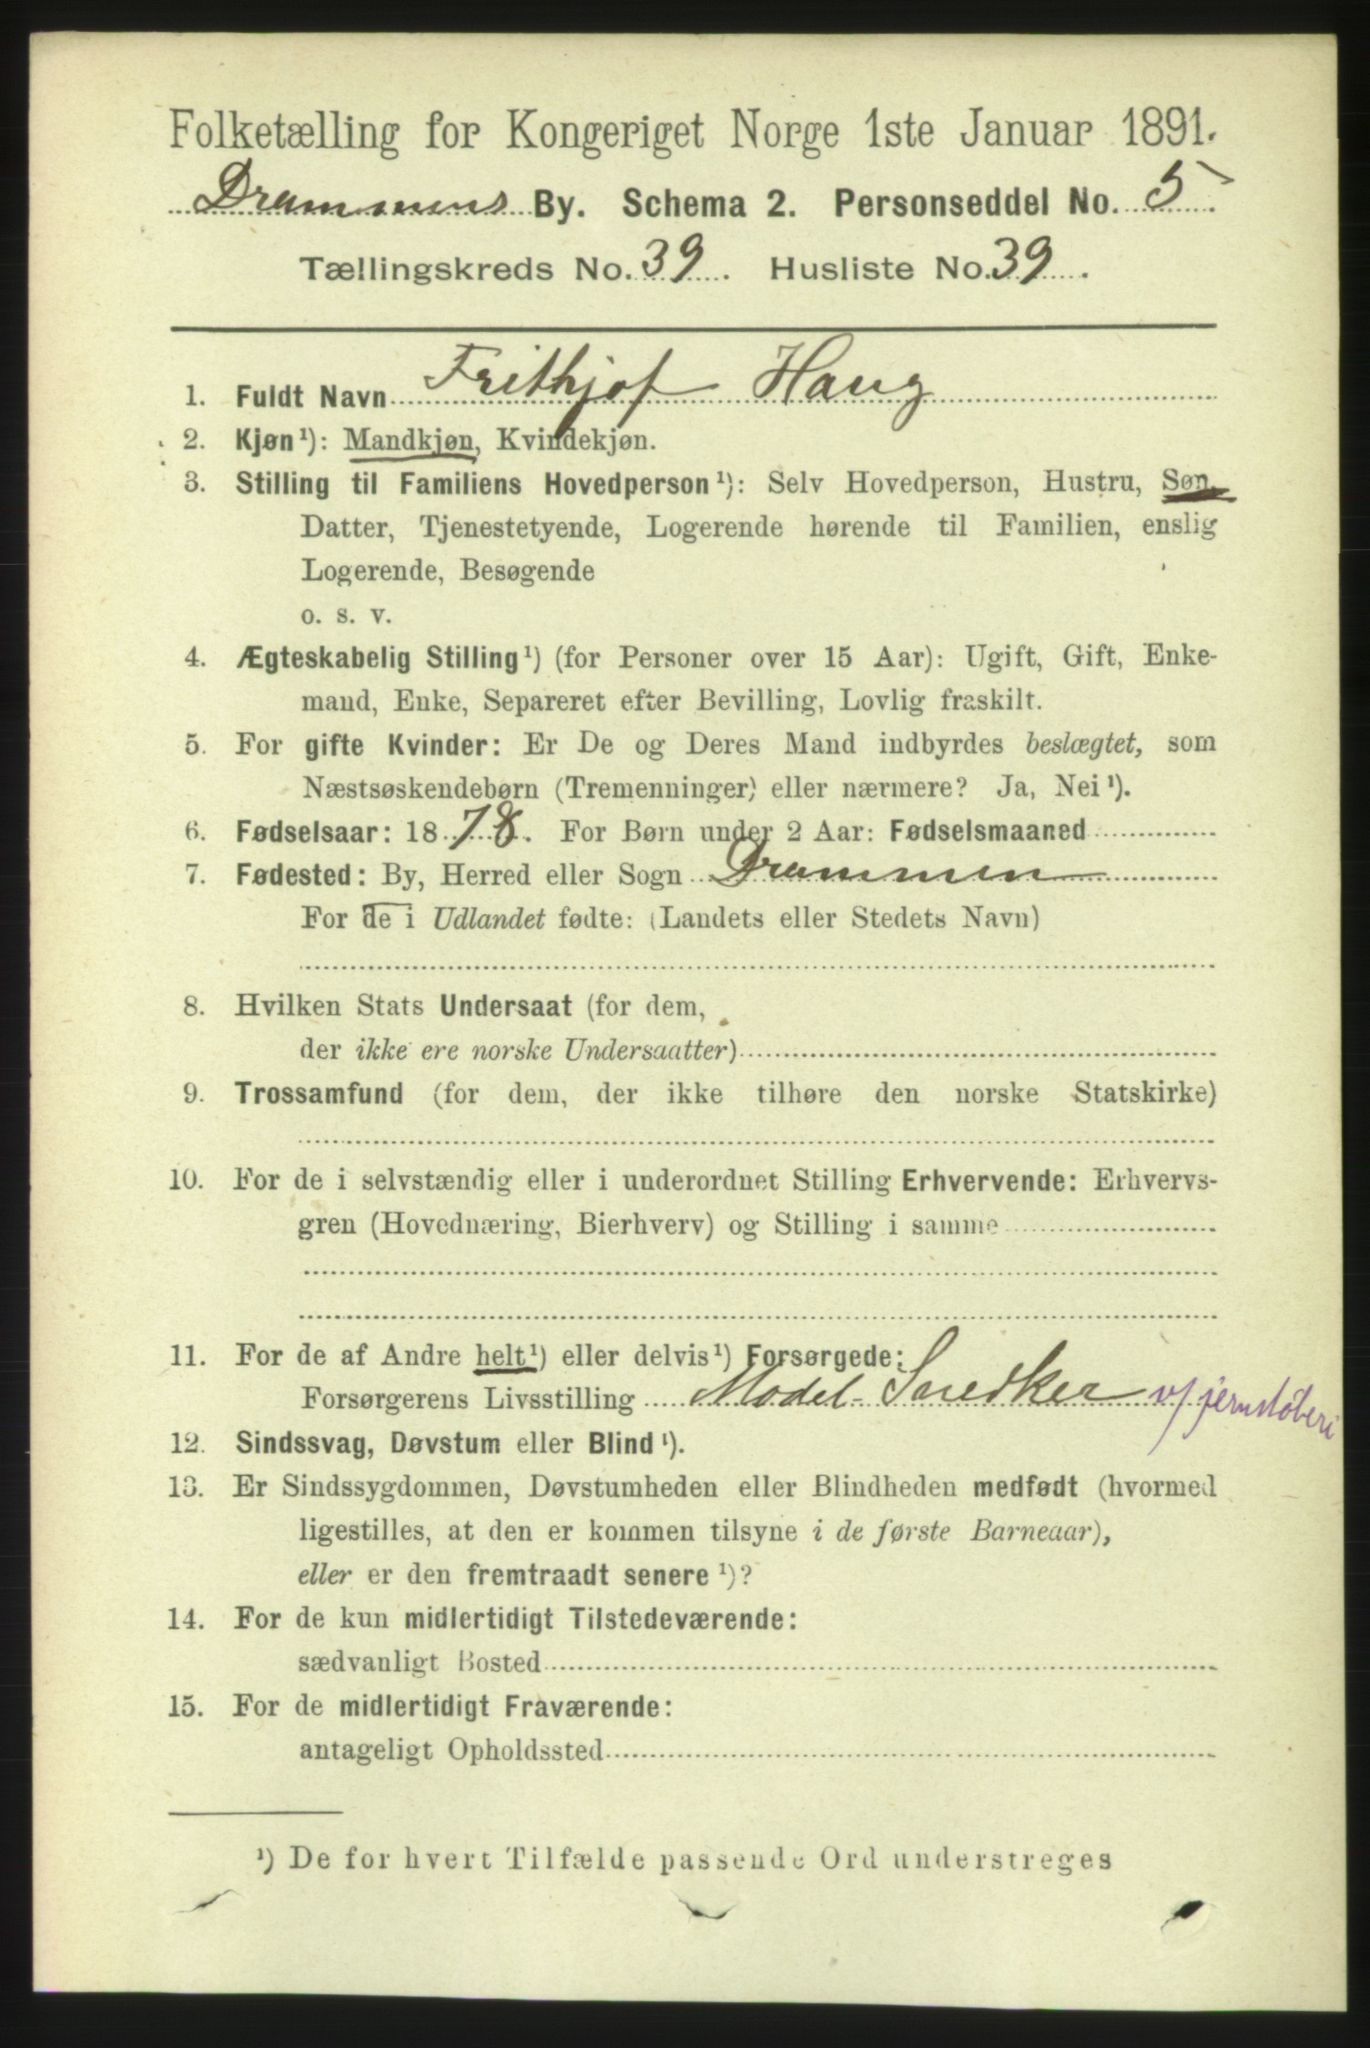 Folketælling for Kongeriget Norge 1ste Januar 1891.
Drammens By. Schema 2. Personseddel No. 5.
Tællingskreds No. 39. Husliste No. 39.
1. Fuldt Navn Frithjof Haug
2. Kjøn¹): Mandkjøn, Kvindekjøn.
3. Stilling til Familiens Hovedperson¹): Selv Hovedperson, Hustru, Søn,
Datter, Tjenestetyende, Logerende hørende til Familien, enslig
Logerende, Besøgende
o. s. v.
4. Ægteskabelig Stilling¹) (for Personer over 15 Aar): Ugift, Gift, Enke-
mand, Enke, Separeret efter Bevilling, Lovlig fraskilt.
5. For gifte Kvinder: Er De og Deres Mand indbyrdes beslægtet, som
Næstsøskendebørn (Tremenninger) eller nærmere? Ja, Nei¹).
6. Fødselsaar: 1878. For Børn under 2 Aar: Fødselsmaaned
7. Fødested: By, Herred eller Sogn Drammen
For de i Udlandet fødte: (Landets eller Stedets Navn)
8. Hvilken Stats Undersaat (for dem,
der ikke ere norske Undersaatter)
9. Trossamfund (for dem, der ikke tilhøre den norske Statskirke)
10. For de i selvstændig eller i underordnet Stilling Erhvervende: Erhvervs-
gren (Hovednæring, Bierhverv) og Stilling i samme
11. For de af Andre helt¹) eller delvis¹) Forsørgede:
Forsørgerens Livsstilling Model-Snedker v/ jernstøberi
12. Sindssvag, Døvstum eller Blind¹).
13. Er Sindssygdommen, Døvstumheden eller Blindheden medfødt (hvormed
ligestilles, at den er kommen tilsyne i de første Barneaar),
eller er den fremtraadt senere¹)?
14. For de kun midlertidigt Tilstedeværende:
sædvanligt Bosted
15. For de midlertidigt Fraværende:
antageligt Opholdssted
¹) De for hvert Tilfælde passende Ord understreges